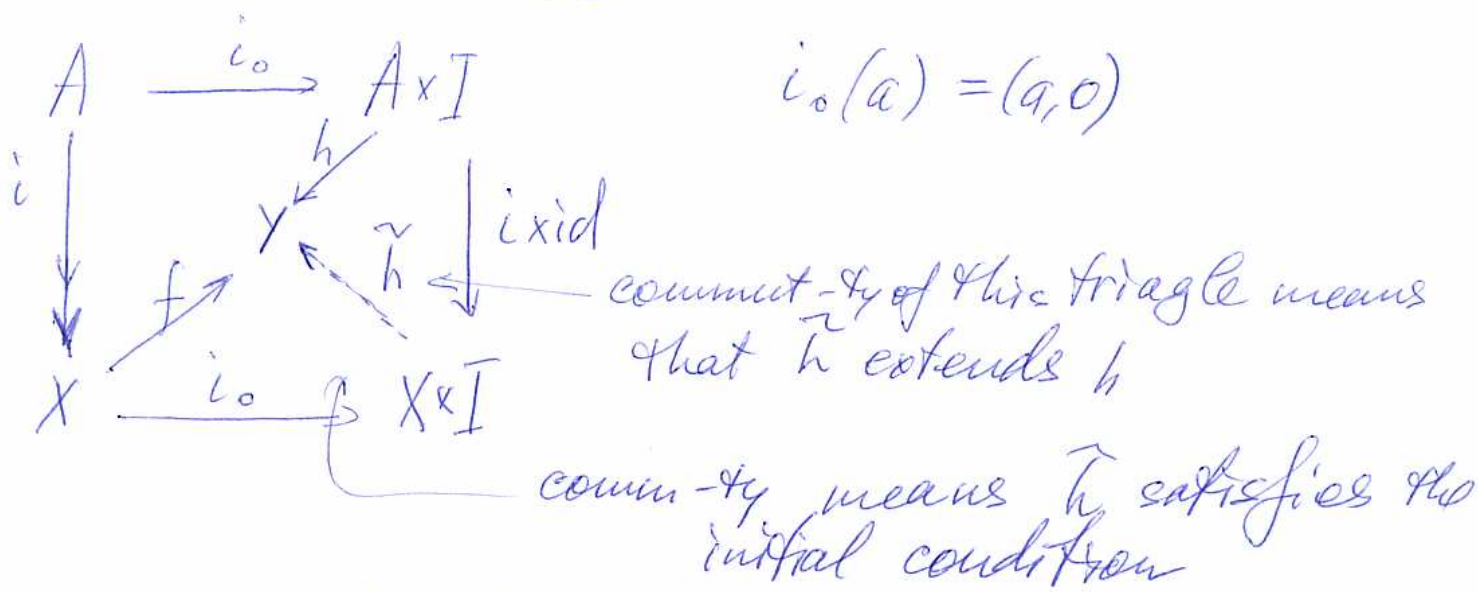 A i₀ A×I i₀(a) = (a,0)
h
i Y i×id
h̃
f commut-ty of this triagle means
that h̃ extends h
X i₀ X×I
comm-ty means h̃ satisfies the
initial condition